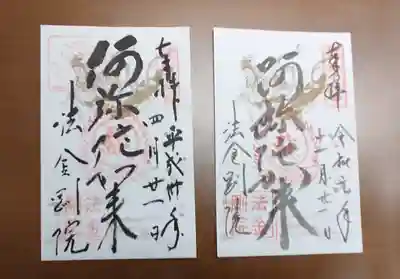 奉拝
平成卅年
四月廿一日
阿弥陀如来
法金剛院
奉拝
令和元年
月廿一日
阿弥陀如来
法金剛院